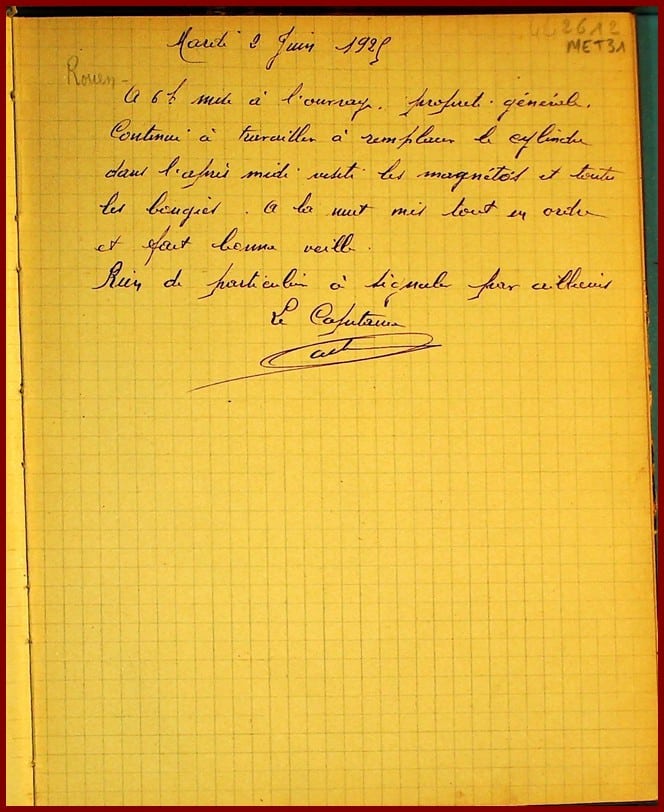 Mardi 2 Juin 1925
442612
MET31
Rouen -
A 6h mise à l'ouvrage. propreté générale.
Continué à travailler à remplacer le cylindre
dans l'après midi visité les magnétos et toute
les bougies. A la nuit mis tout en ordre
et fait bonne veille.
Rien de particulier à signaler par ailleurs
Le Capitaine